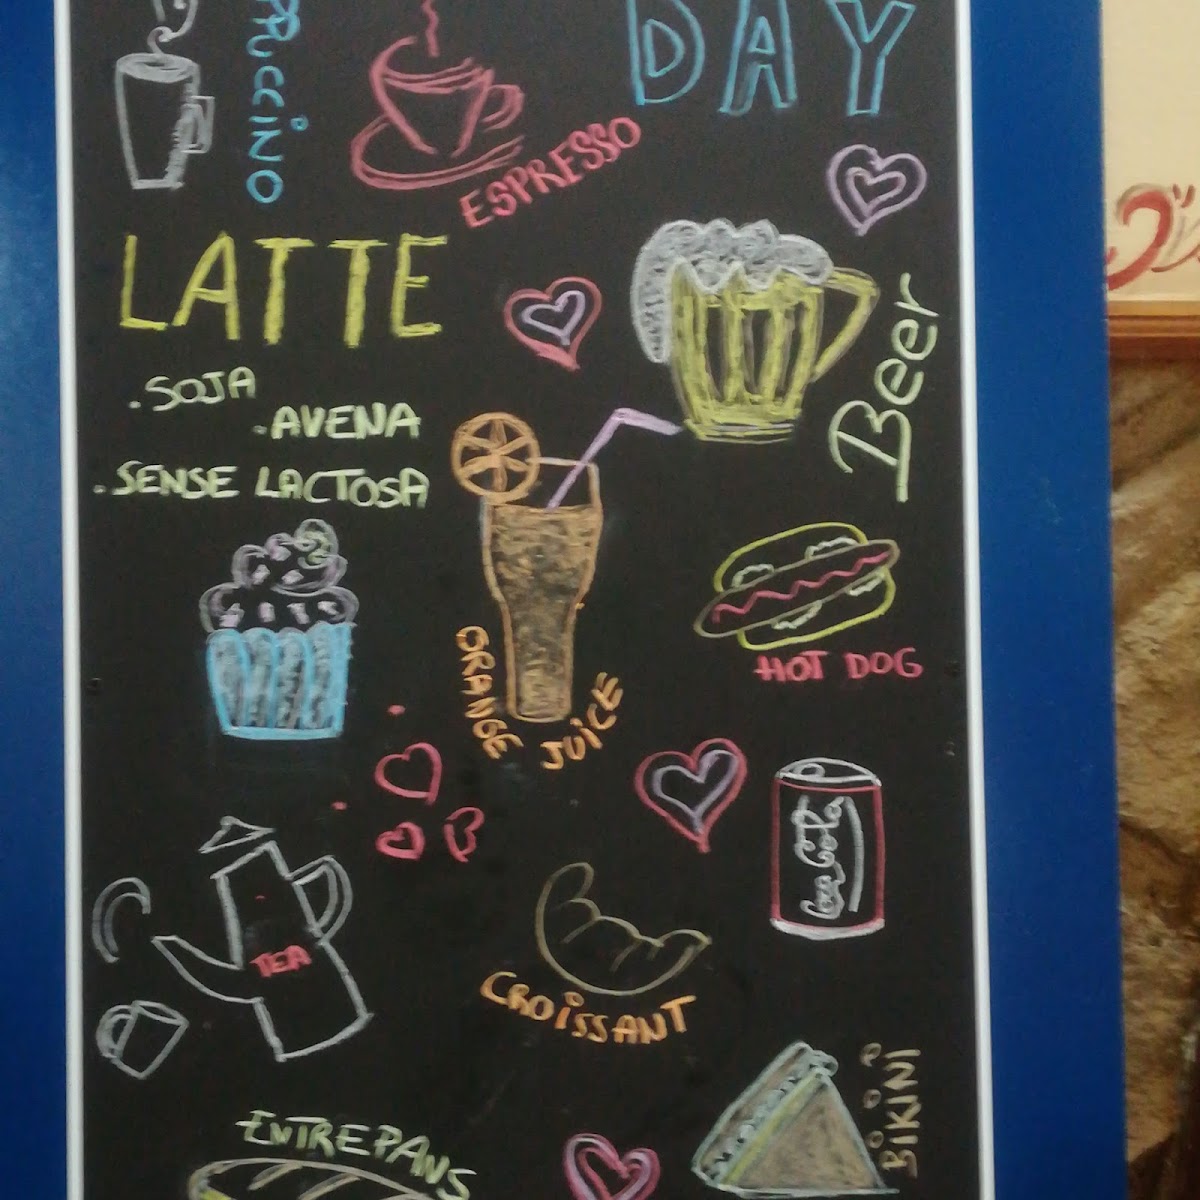 DAY
ESPRESSO
LATTE
.SOJA
.AVENA
.SENSE LACTOSA
Beer
HOT DOG
ORANGE JUICE
Coca Cola
TEA
CROISSANT
BIKINI
ENTREPANS